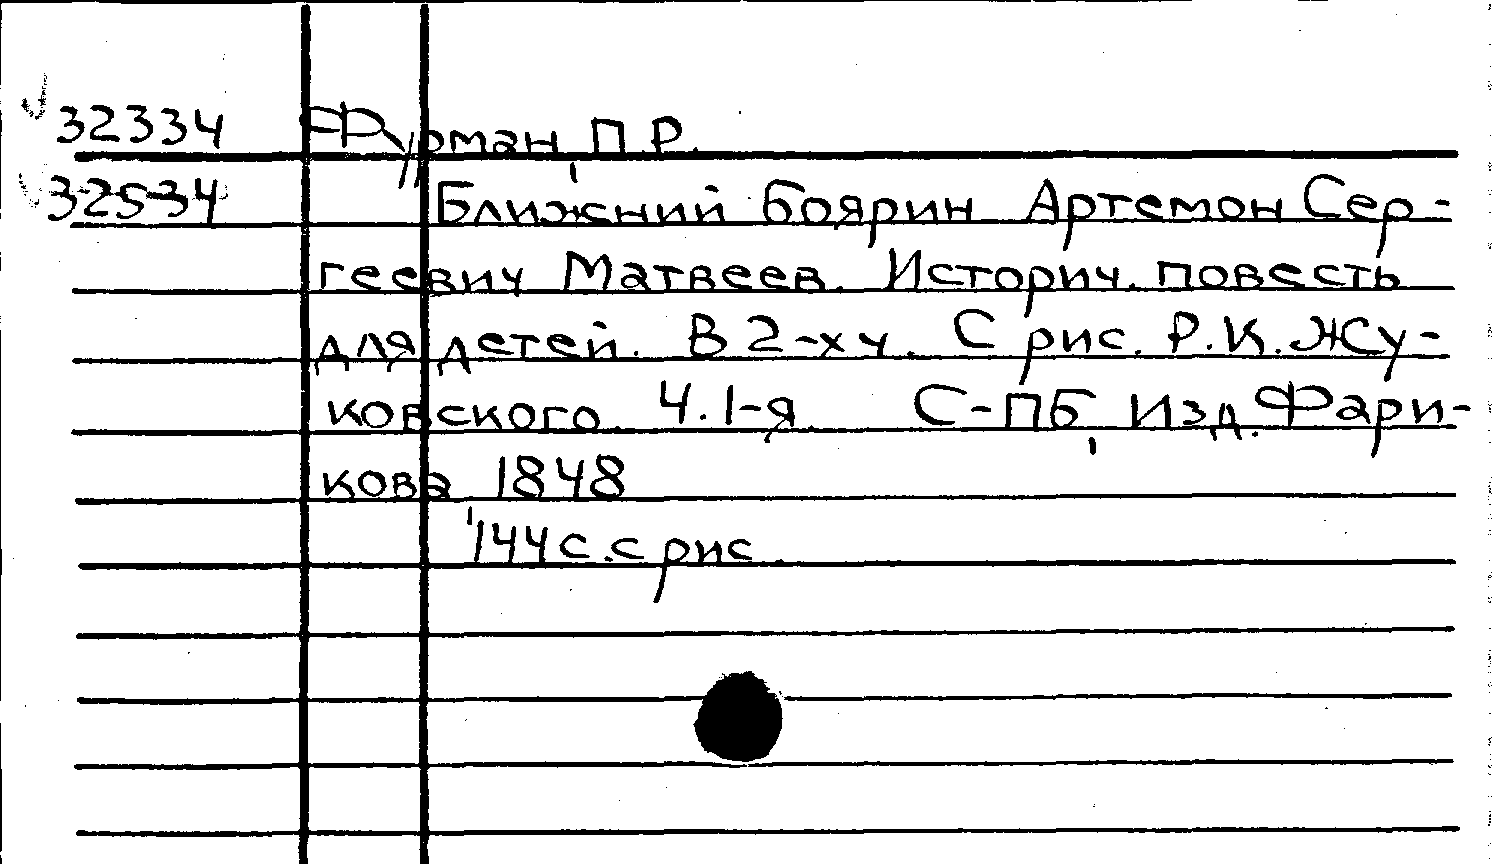 32334 Фурман, П.Р.
32534 Ближний боярин Артемон Сер-
геевич Матвеев. Историч. повесть
для детей. В 2-х ч. С рис. Р.К. Жу-
ковского. Ч. 1-я. С-ПБ, Изд. Фари-
кова 1848
144 с. с рис.